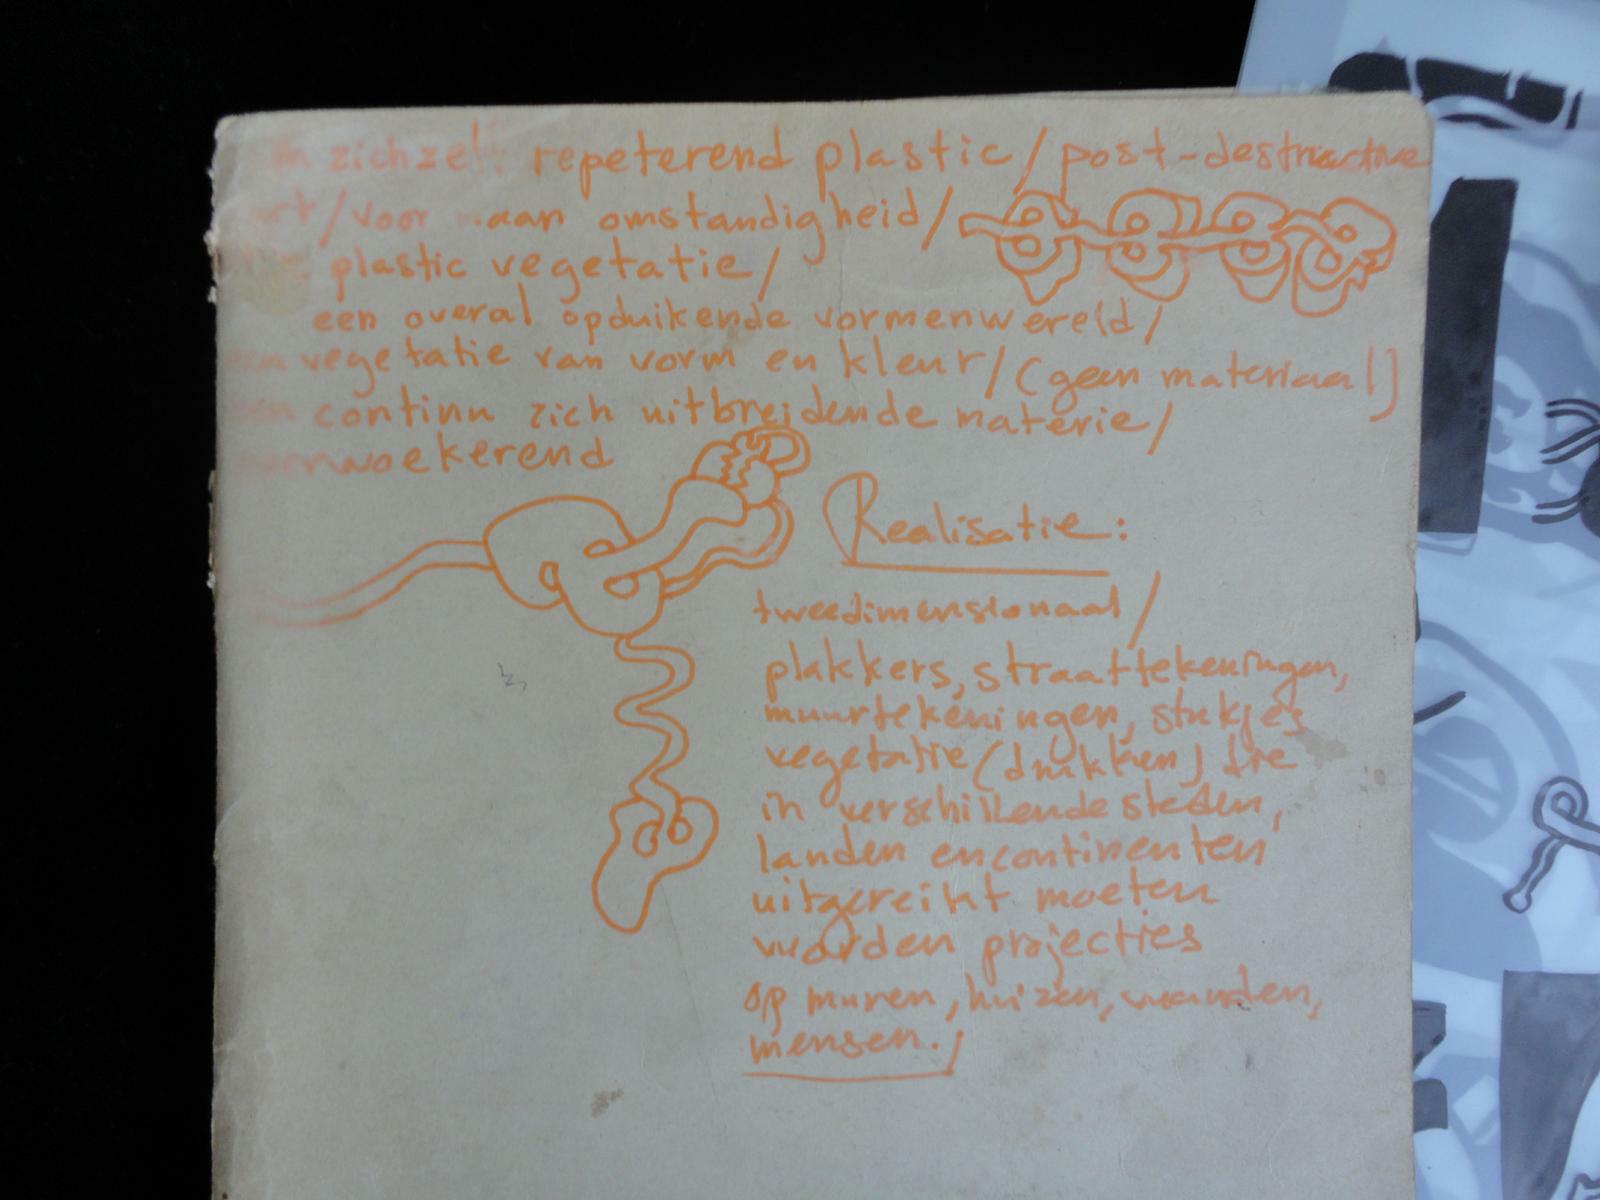 zichzelf repeterend plastic/post-destructive
art/voor aan omstandigheid/
plastic vegetatie/
een overal opduikende vormenwereld/
een vegetatie van vorm en kleur/(geen materiaal)
een continu zich uitbreidende materie/
woekerend
Realisatie:
tweedimensionaal/
plakkers, straattekeningen,
muurtekeningen, stukjes
vegetatie (drukken) die
in verschillende steden,
landen en continenten
uitgereikt moeten
worden projecties
op muren, huizen, wanden,
mensen./